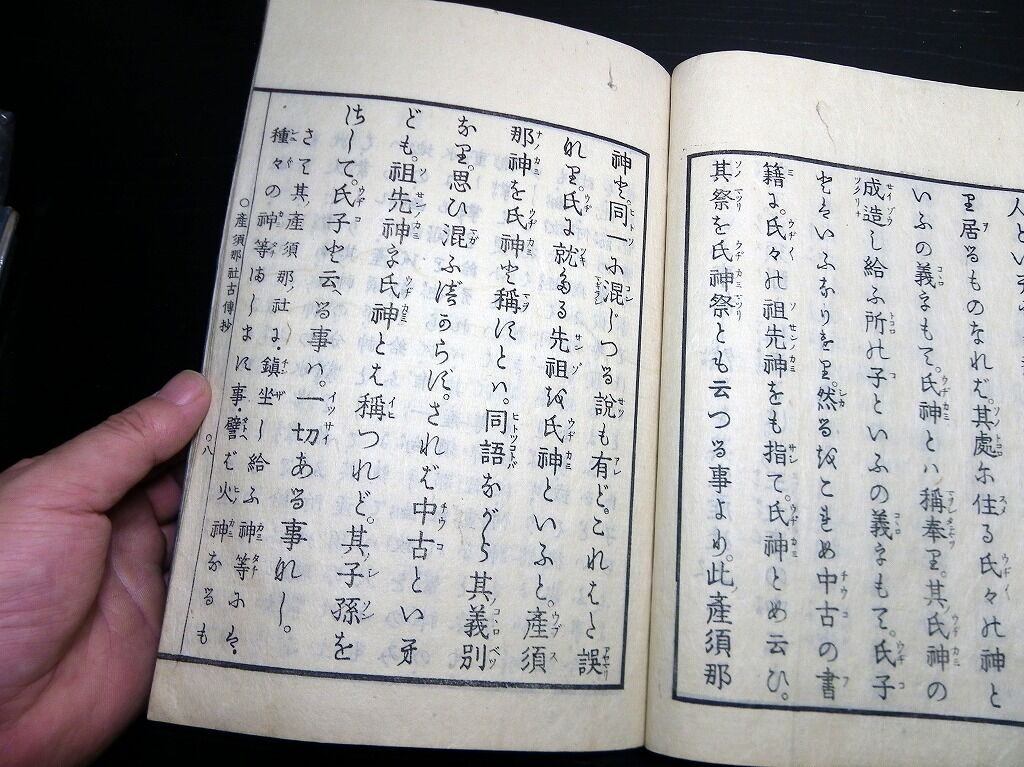 里居るものなれば。其處尓住る氏々の神と
いふの義もて。氏神とハ稱奉里。其氏神の
成造し給ふ所の子といふの義もて。氏子
とハいふなりけり。然るをこゝもめ中古の書
籍に。氏々の祖先神をも指て。氏神とめ云ひ。
其祭を氏神祭とも云つる事より。此産須那
神と同一に混じつる説も有ど。これはた誤
れり。氏に就たる先祖を氏神といふと。産須
那神を氏神と稱すとハ。同語ながら其義別
なり。思ひ混ふべからず。されば中古といへ
ども。祖先神を氏神とは稱つれど。其子孫を
さして。氏子と云へる事ハ。一切ある事なし。
さて其産須那ノ社に鎮坐し給ふ神等には。
種々の神等ましますに事・譬ば火ノ神なるも
〇産須那社古傳抄 〇八